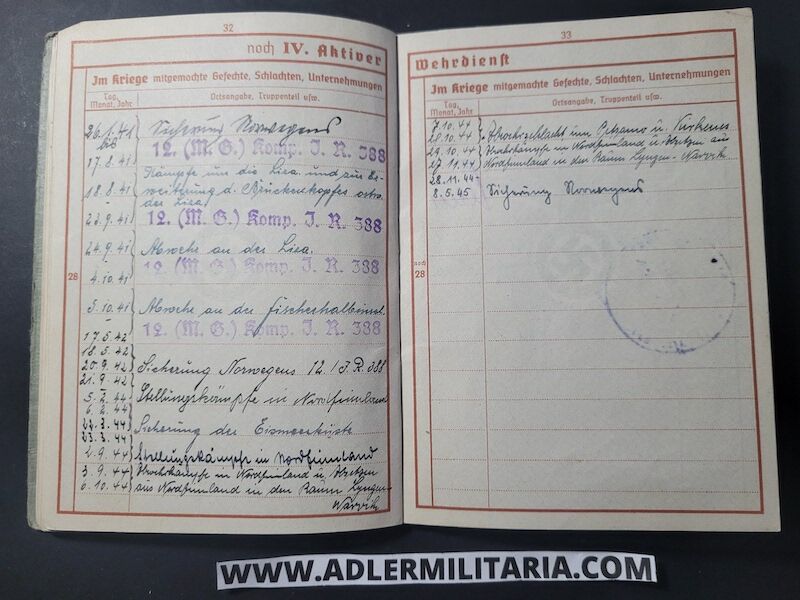 32
noch IV. Aktiver
Im Kriege mitgemachte Gefechte, Schlachten, Unternehmungen
Tag, Monat, Jahr
Ortsangabe, Truppenteil usw.
26.1.41
bis
Sicherung Norwegens
12. (M. G.) Komp. J. R. 388
17.8.41
18.8.41
Kämpfe um die Liza und zur Er-
weiterung d. Brückenkopfes ostw.
der Liza
23.9.41
12. (M. G.) Komp. J. R. 388
24.9.41
Abwehr an der Liza.
12. (M. G.) Komp. J. R. 388
28
4.10.41
5.10.41
Abwehr an der Fischerhalbinsel.
12. (M. G.) Komp. J. R. 388
17.5.42
18.5.42
20.9.42
Sicherung Norwegens 12./J.R. 388
21.9.42
5.2.44
Stellungskämpfe in Nordfinnland
6.2.44
22.3.44
Sicherung der Eismeerküste
23.3.44
2.9.44
Stellungskämpfe in Nordfinnland
3.9.44
6.10.44
Abwehrkämpfe in Nordfinnland u. Absetzen
aus Nordfinnland in den Raum Lyngen-
Narvik
33
Wehrdienst
Im Kriege mitgemachte Gefechte, Schlachten, Unternehmungen
Tag, Monat, Jahr
Ortsangabe, Truppenteil usw.
7.10.44
28.10.44
Abwehrschlacht um Petsamo u. Kirkenes
29.10.44
27.11.44
Abwehrkämpfe in Nordfinnland u. Absetzen aus
Nordfinnland in den Raum Lyngen-Narvik
28.11.44-
8.5.45
Sicherung Norwegens
noch
28
WWW.ADLERMILITARIA.COM